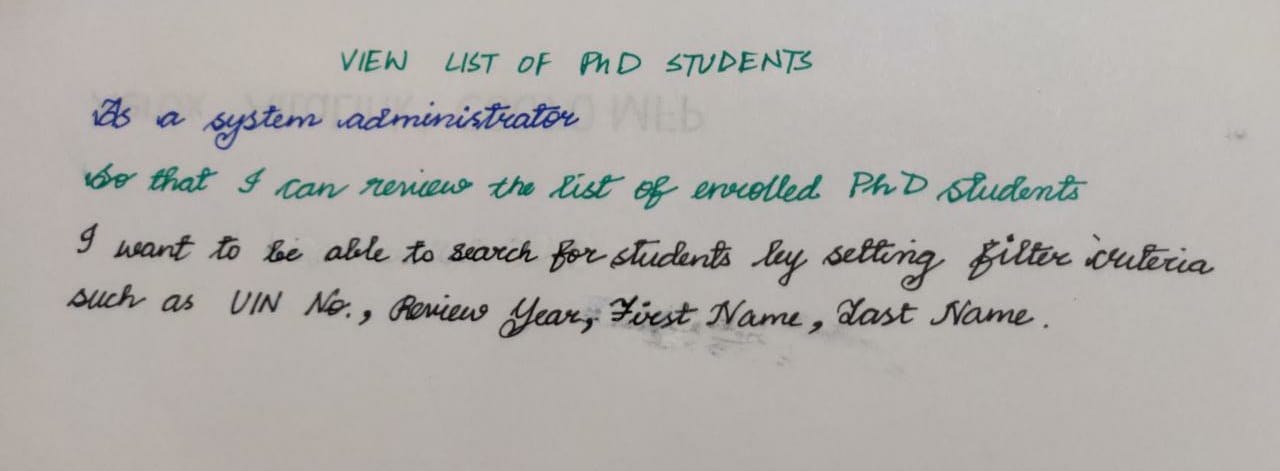 VIEW LIST OF PhD STUDENTS
As a system administrator
So that I can review the list of enrolled PhD students
I want to be able to search for students by setting filter criteria
such as UIN No., Review Year, First Name, Last Name.